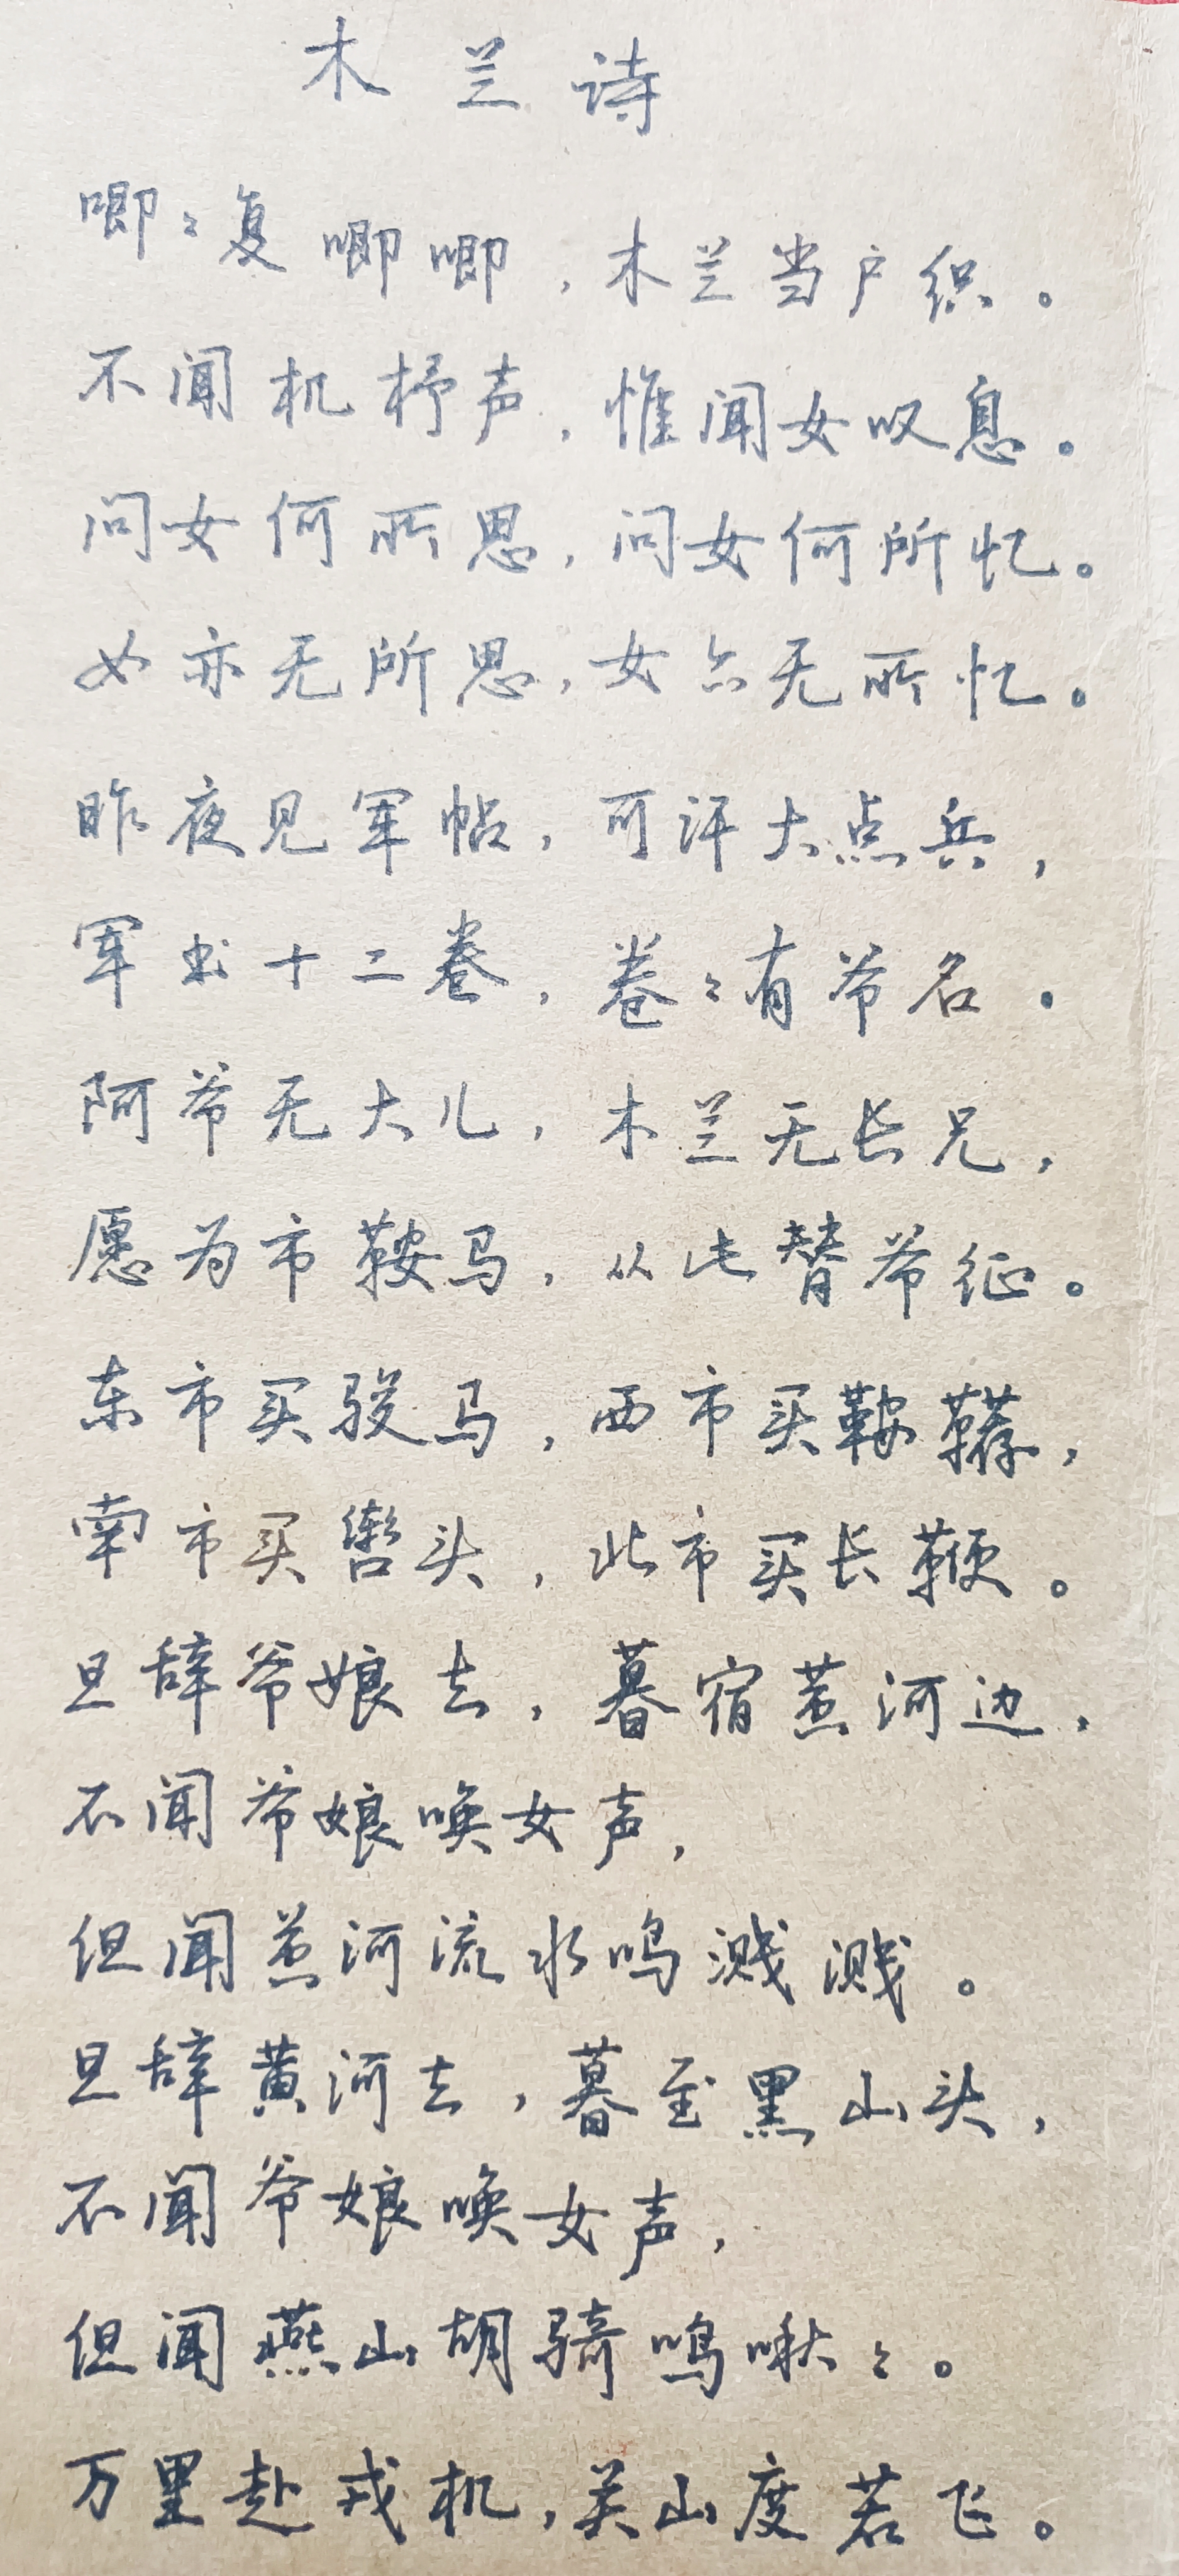 木兰诗
唧々复唧唧，木兰当户织。
不闻机杼声，惟闻女叹息。
问女何所思，问女何所忆。
女亦无所思，女亦无所忆。
昨夜见军帖，可汗大点兵，
军书十二卷，卷々有爷名。
阿爷无大儿，木兰无长兄，
愿为市鞍马，从此替爷征。
东市买骏马，西市买鞍鞯，
南市买辔头，北市买长鞭。
旦辞爷娘去，暮宿黄河边，
不闻爷娘唤女声，
但闻黄河流水鸣溅溅。
旦辞黄河去，暮至黑山头，
不闻爷娘唤女声，
但闻燕山胡骑鸣啾々。
万里赴戎机，关山度若飞。